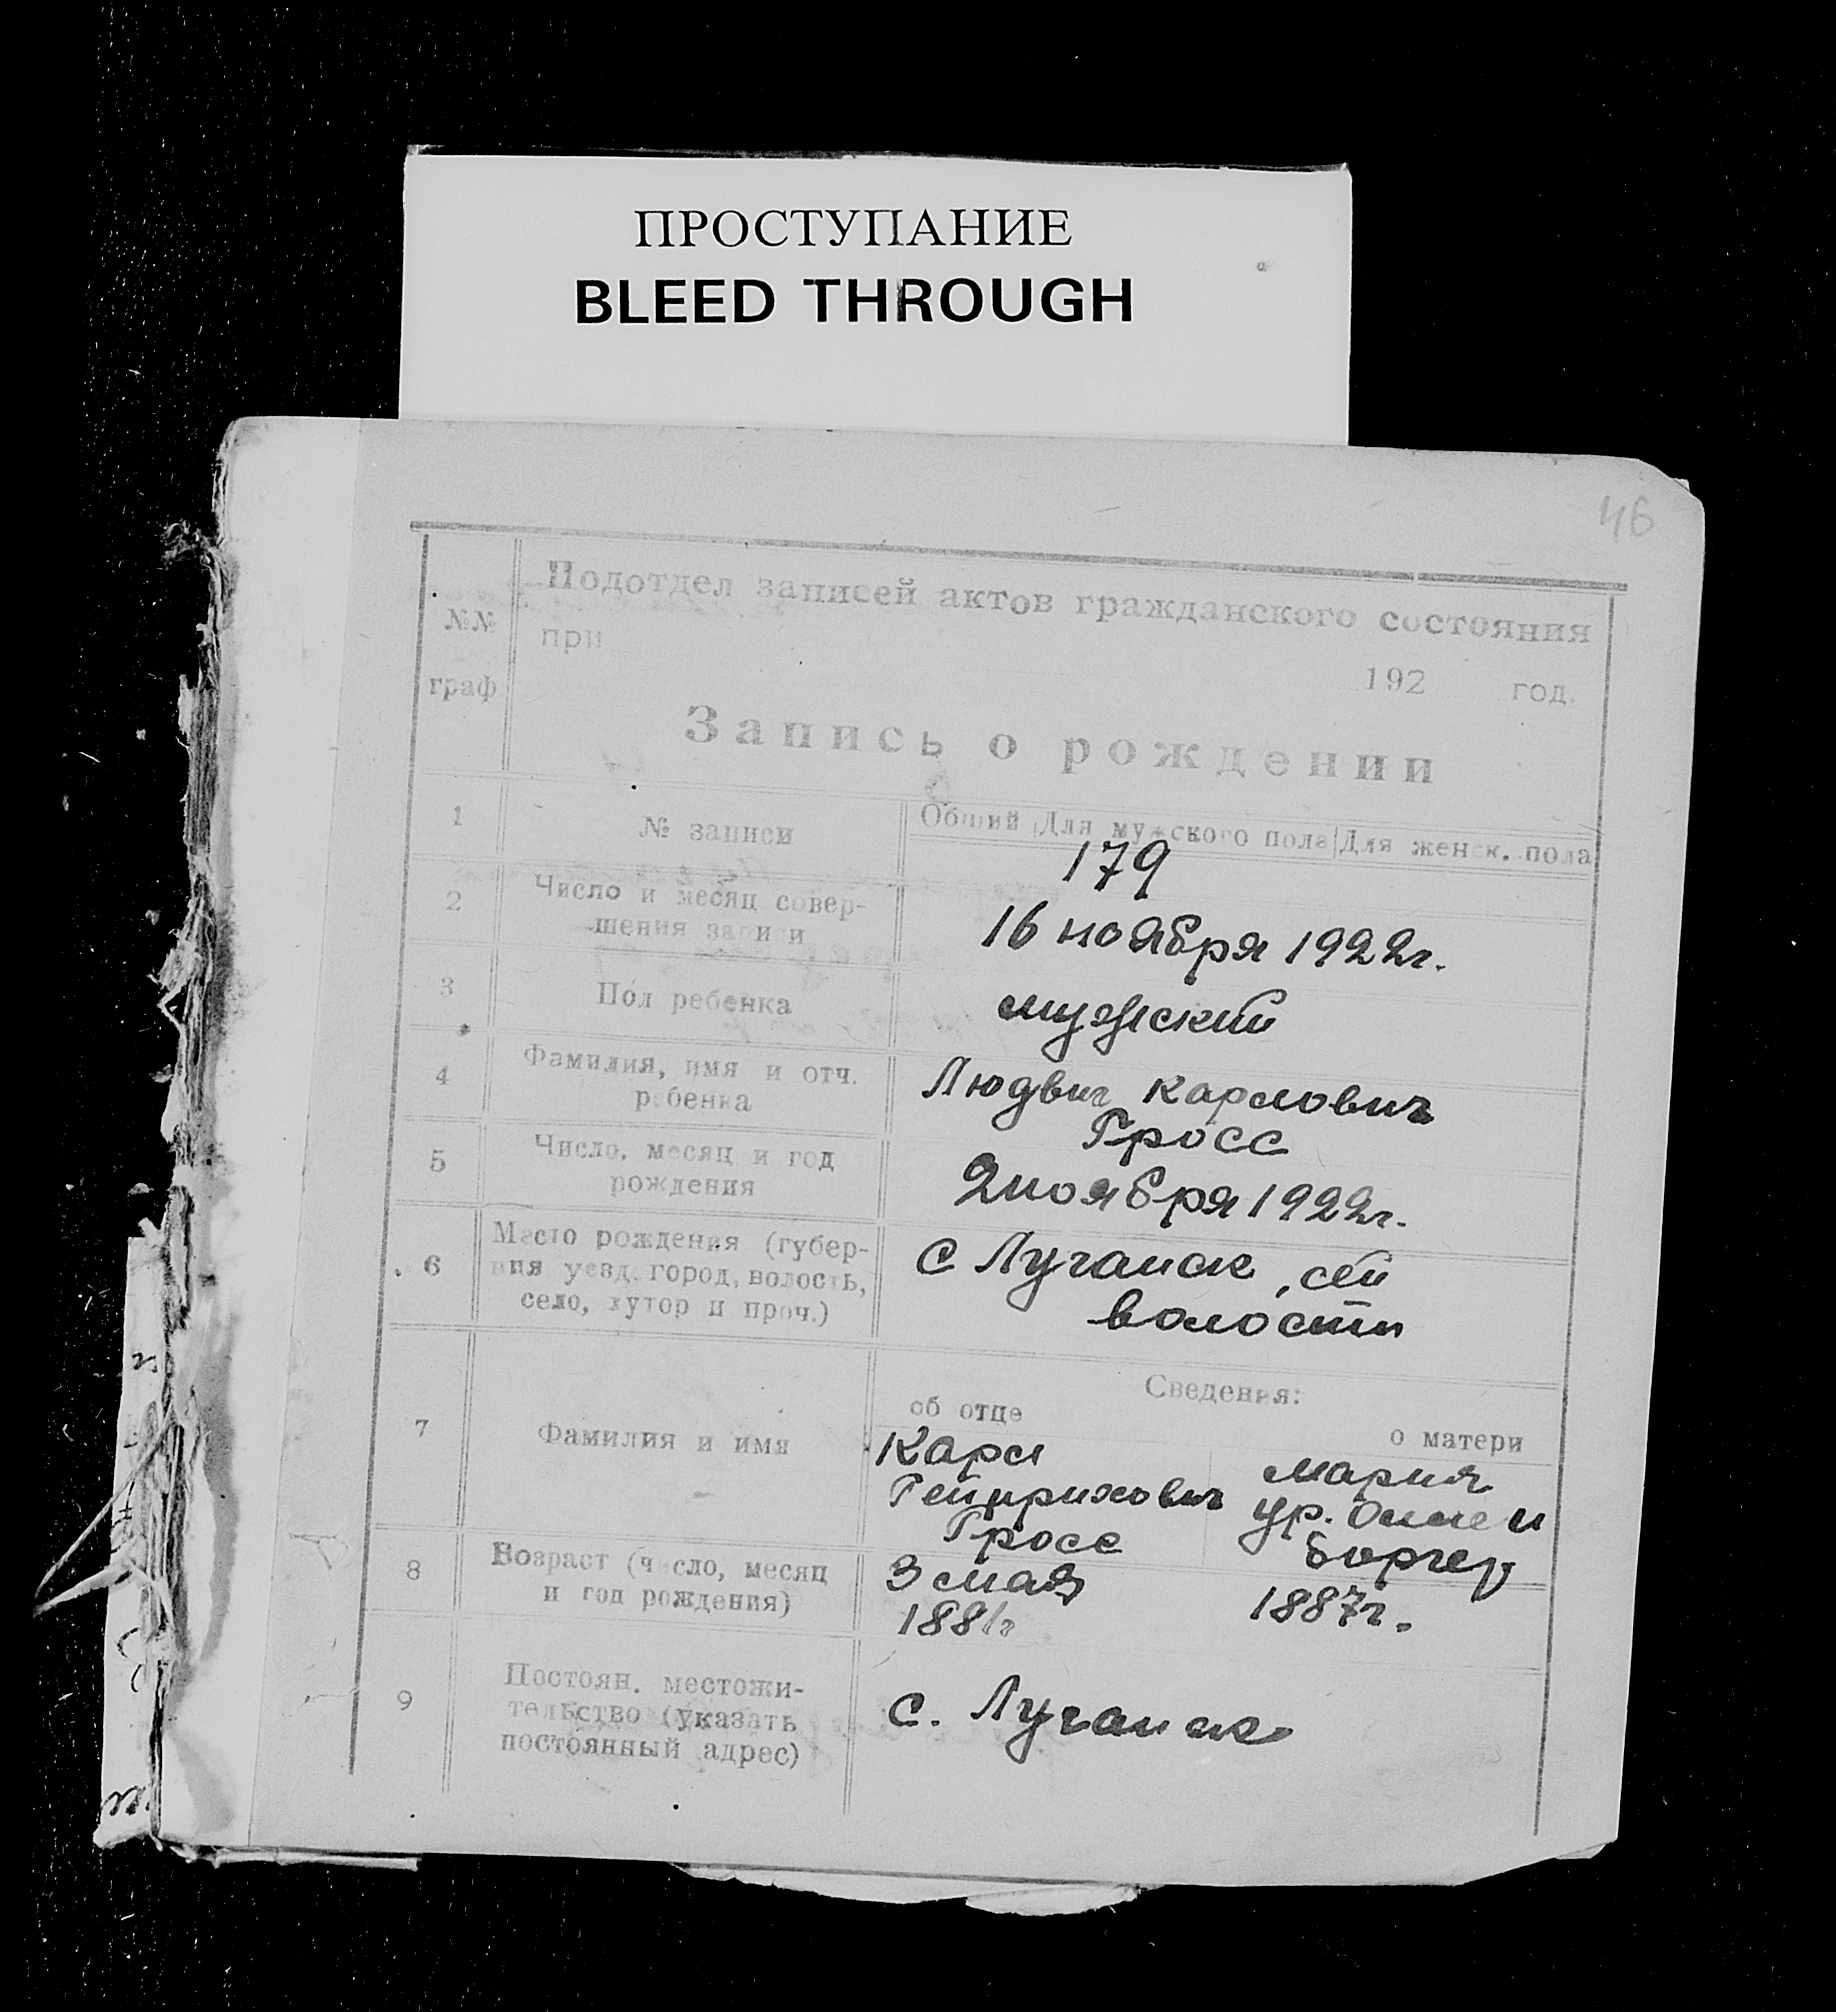 ПРОСТУПАНИЕ
BLEED THROUGH
46
№№ граф
Подотдел записей актов гражданского состояния
при
192 год.
Запись о рождении
1 № записи Общий Для мужского пола Для женск. пола
179
2 Число и месяц совер-
шения записи
16 ноября 1922г.
3 Пол ребенка мужский
4 Фамилия, имя и отч.
ребенка
Людвиг Карлович
Гросс
5 Число, месяц и год
рождения
2 ноября 1922г.
6 Место рождения (губер-
ния уезд, город, волость,
село, хутор и проч.)
с Луганск, сей
волости
Сведения:
об отце о матери
7 Фамилия и имя
Карл
Гейнрихович
Гросс
Мария
ур.
8 Возраст (число, месяц
и год рождения)
3 мая
1881г
1887г.
9 Постоян. местожи-
тельство (указать
постоянный адрес)
с. Луганск